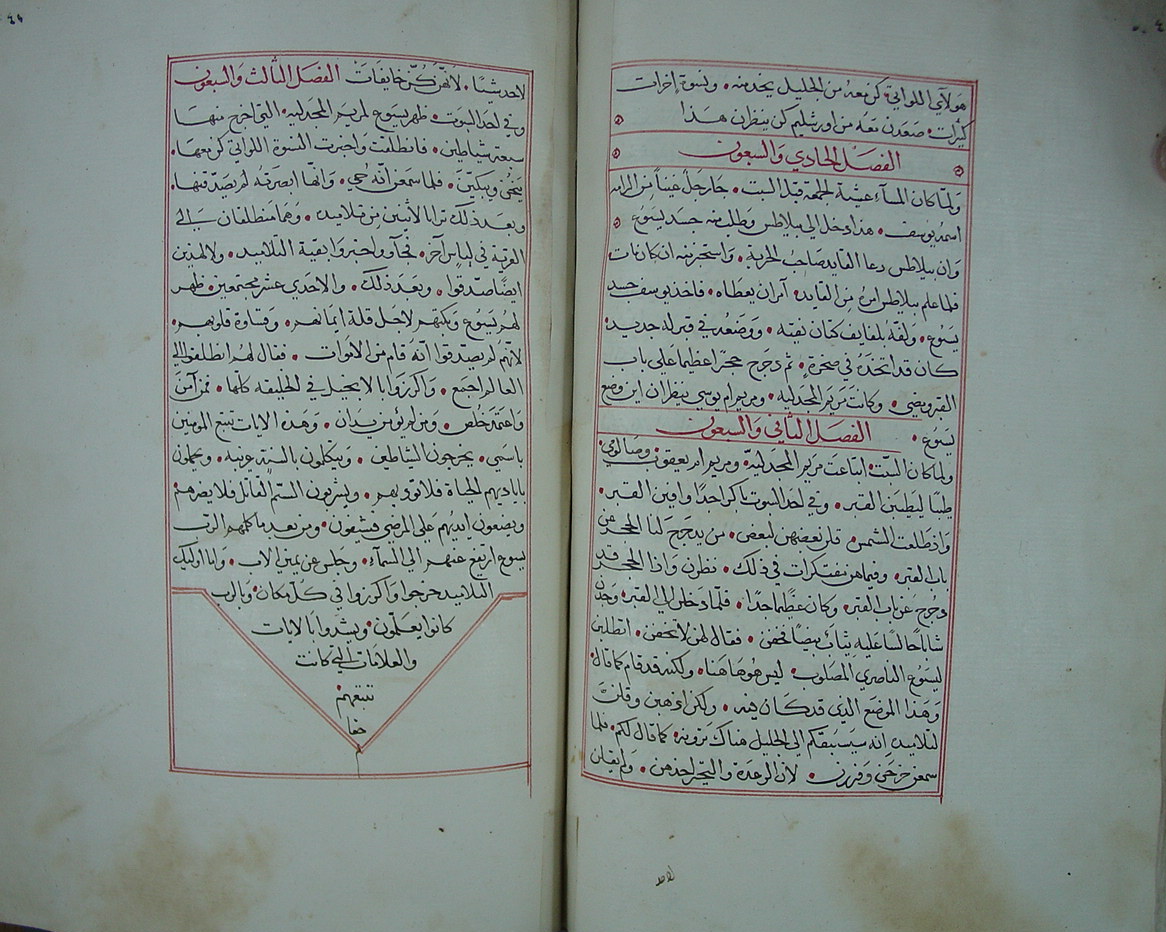 هولاي اللواتي كن معه من الجليل يخدمنه • ونسوة اخرات
كثيرات صعدن معه من اورشليم كن ينظران هذا
الفصل الحادي والسبعون
ولما كان المساء عشية الجمعه قبل السبت • جا رجل غنيا من الرامه
اسمه يوسف • هذا دخل الي بيلاطس وطلب منه جسد يسوع
وان بيلاطس دعا القايد صاحب الحربة • واستخبر منه ان كان مات
فلما علم بيلاطس امره من القايد • امر ان يعطاه • فاخذ يوسف جسد
يسوع • ولفه بلفايف كتان نقيه • ووضعه في قبر له جديد •
كان قد اتخذه في صخرة • ثم دحرج حجرا عظيما علي باب
القبر ومضي • وكانت مريم المجدليه • ومريم ام يوسي ينظران اين وضع
يسوع • الفصل الثاني والسبعون
ولما كان السبت ابتاعت مريم المجدلية • ومريم ام يعقوب وصالومي •
طيبا ليطيبن القبر • وفي احد السبوت باكرا جدا وافين القبر •
واذ طلعت الشمس • قلن بعضهن لبعض • من يدحرج لنا الحجر عن
باب القبر • وفيما هن مفتكرات في ذلك • نظرن واذا الحجر قد
دحرج عن باب القبر • وكان عظيما جدا • فلما دخلن الي القبر • وجدن
شابا جالسا عليه ثياب بيضا فخفن • فقال لهن لا تخفن • اتطلبن
ليسوع الناصري المصلوب • ليس هو هاهنا • ولكنه قد قام كما قال •
وهذا الموضع الذي قد كان فيه • ولكن اذهبن وقلن
لتلاميذه انه سيسبقكم الي الجليل هناك ترونه • كما قال لكم • فلما
سمعن خرجن وفررن • لان الرعدة والتحير اخذهن • ولم يقلن
لاحد شيا • لانهن كن خايفات الفصل الثالث والسبعون
وفي احد السبوت • ظهر يسوع لمريم المجدليه • التي اخرج منها
سبعة شياطين • فانطلقت واخبرت النسوة اللواتي كن معها •
ينحن ويبكين • فلما سمعن انه حي • وانها ابصرته لم يصدقنها •
وبعد ذلك ترايا لاثنين من تلاميذه • وهما منطلقان الي
القرية في لباس اخر • فجاو واخبروا بقية التلاميذ • ولا لهذين
ايضا صدقوا • وبعد ذلك • والاحدي عشر مجتمعين • ظهر
لهم يسوع وبكتهم لاجل قلة ايمانهم • وقساوة قلوبهم •
لانهم لم يصدقوا انه قام من الاموات • فقال لهم انطلقوا الي
العالم اجمع • واكرزوا بالانجيل في الخليقه كلها • فمن امن
واعتمد خلص • ومن لم يؤمن يدان • وهذه الايات تتبع المومنين
باسمي • يخرجون الشياطين • ويتكلمون بالسنة غريبه • ويحملون
بايديهم الحياة فلا توذيهم • ويشربون السم القاتل فلا يضرهم
ويضعون ايديهم علي المرضي فيشفون • ومن بعد ما كلمهم الرب
يسوع ارتفع عنهم الي السماء • وجلس عن يمين الاب • واما اوليك
التلاميذ خرجوا واكرزوا في كل مكان • وبالرب
كانوا يعملون • وينذروا بالايات
والعلامات التي كانت
تتبعهم
حقا